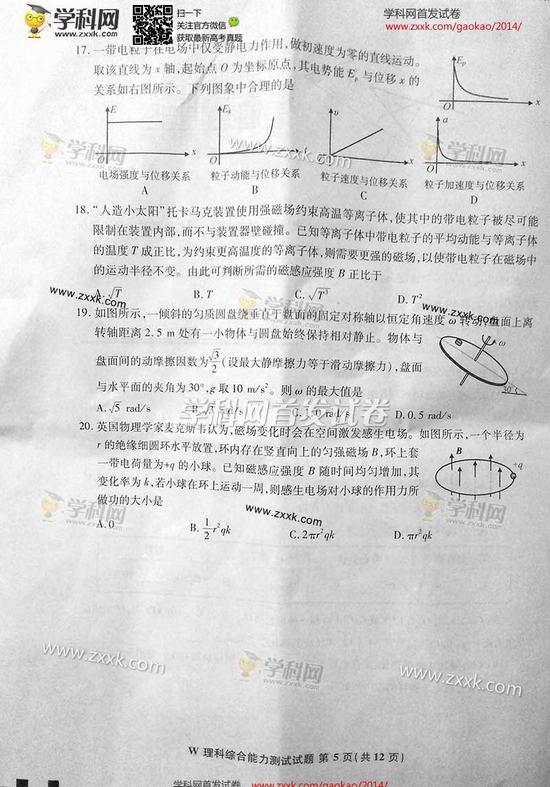 学科网
WWW.ZXXK.COM
扫一下
关注官方微信
获取最新高考真题
学科网首发试卷
www.zxxk.com/gaokao/2014/
17. 一带电粒子在电场中仅受静电力作用,做初速度为零的直线运动。
取该直线为 x 轴,起始点 O 为坐标原点,其电势能 Ep 与位移 x 的
关系如右图所示。下列图象中合理的是
Ep
O
x
E
O
x
Ek
O
x
υ
O
x
a
O
x
电场强度与位移关系
粒子动能与位移关系
粒子速度与位移关系
粒子加速度与位移关系
A
B
C
D
18. “人造小太阳”托卡马克装置使用强磁场约束高温等离子体,使其中的带电粒子被尽可能
限制在装置内部,而不与装置器壁碰撞。已知等离子体中带电粒子的平均动能与等离子体
的温度 T 成正比,为约束更高温度的等离子体,则需要更强的磁场,以使带电粒子在磁场中
的运动半径不变。由此可判断所需的磁感应强度 B 正比于
A. √T
B. T
C. √T³
D. T²
19. 如图所示,一倾斜的匀质圆盘绕垂直于盘面的固定对称轴以恒定角速度 ω 转动,盘面上离
转轴距离 2.5 m 处有一小物体与圆盘始终保持相对静止。物体与
盘面间的动摩擦因数为√3/2(设最大静摩擦力等于滑动摩擦力),盘面
与水平面的夹角为 30°,g 取 10 m/s²。则 ω 的最大值是
ω
30°
A. √5 rad/s
B. √3 rad/s
C. 1.0 rad/s
D. 0.5 rad/s
20. 英国物理学家麦克斯韦认为,磁场变化时会在空间激发感生电场。如图所示,一个半径为
r 的绝缘细圆环水平放置,环内存在竖直向上的匀强磁场 B,环上套
一带电荷量为+q 的小球。已知磁感应强度 B 随时间均匀增加,其
变化率为 k,若小球在环上运动一周,则感生电场对小球的作用力所
做功的大小是
B
+q
A. 0
B. 1/2 r²qk
C. 2πr²qk
D. πr²qk
学科网
www.zxxk.com
学科网首发试卷
zxxk.com
www.zxxk.com
学科网
www.zxxk.com
W 理科综合能力测试试题 第 5 页(共 12 页)
学科网首发试卷
www.zxxk.com/gaokao/2014/